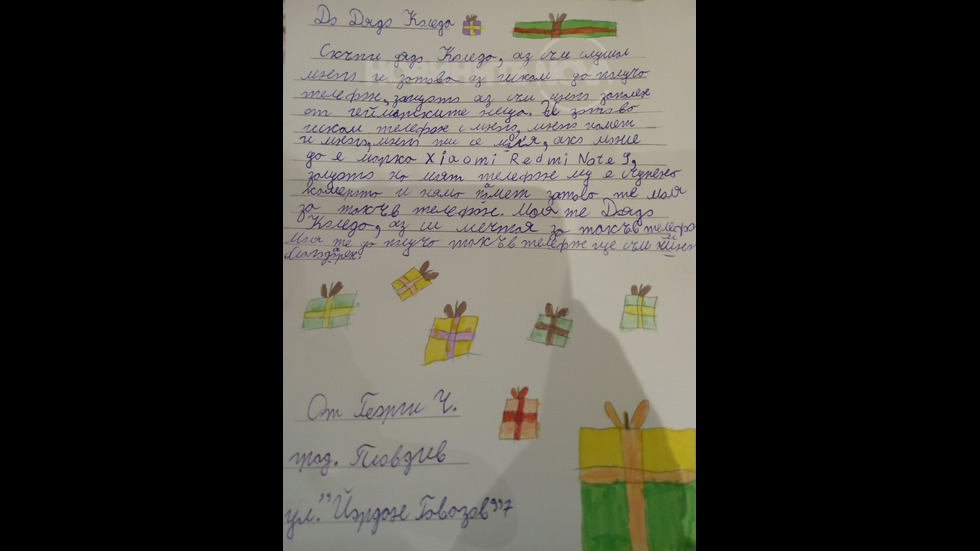 До Дядо Коледа
Скъпи дядо Коледа, аз съм слушал
много и затова аз искам да получа
телефон, защото аз съм много запален
от геймърските неща. И затова
искам телефон с много, много памет
и много, много ти се моля, ако може
да е марка Xiaomi Redmi Note 9,
защото на моят телефон му е счупена
камерата и няма памет затова те моля
за такъв телефон. Моля те Дядо
Коледа, аз си мечтая за такъв телефон
Моля те да получа такъв телефон ще съм ти много
благодарен.
От Георги Ч.
град. Пловдив
ул."Йордан Говазов"